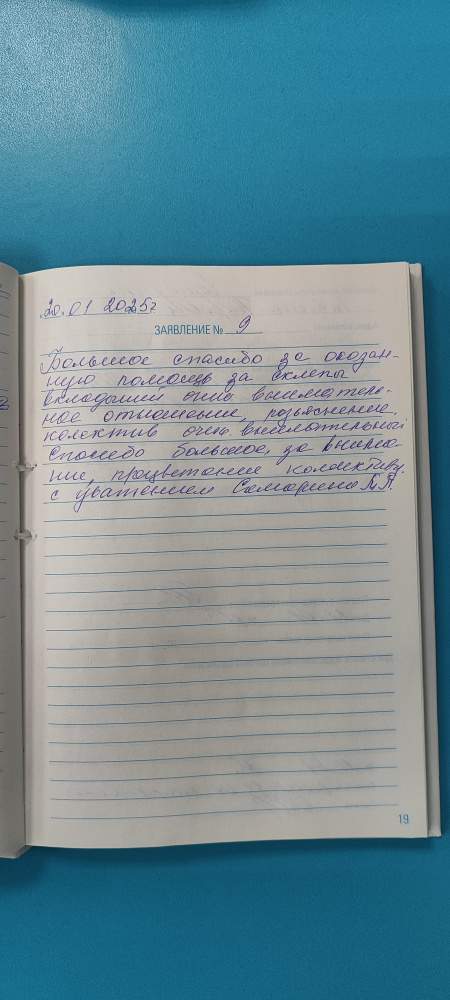 20.01 2025г
ЗАЯВЛЕНИЕ № 9
Большое спасибо за оказан-
ную помощь за
вкладыши очень вниматель-
ное отношение, разьяснение,
колектив очень внимательный
Спасибо большое, за внима-
ние, процветание коллективу.
с уважением Самарина Л.А.
19